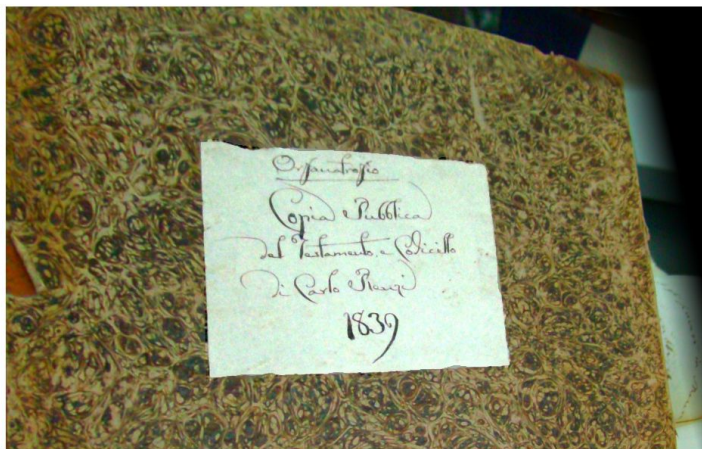 Orfanatrofio
Copia Pubblica
del Testamento, e Codicillo
di Carlo Renzi
1839